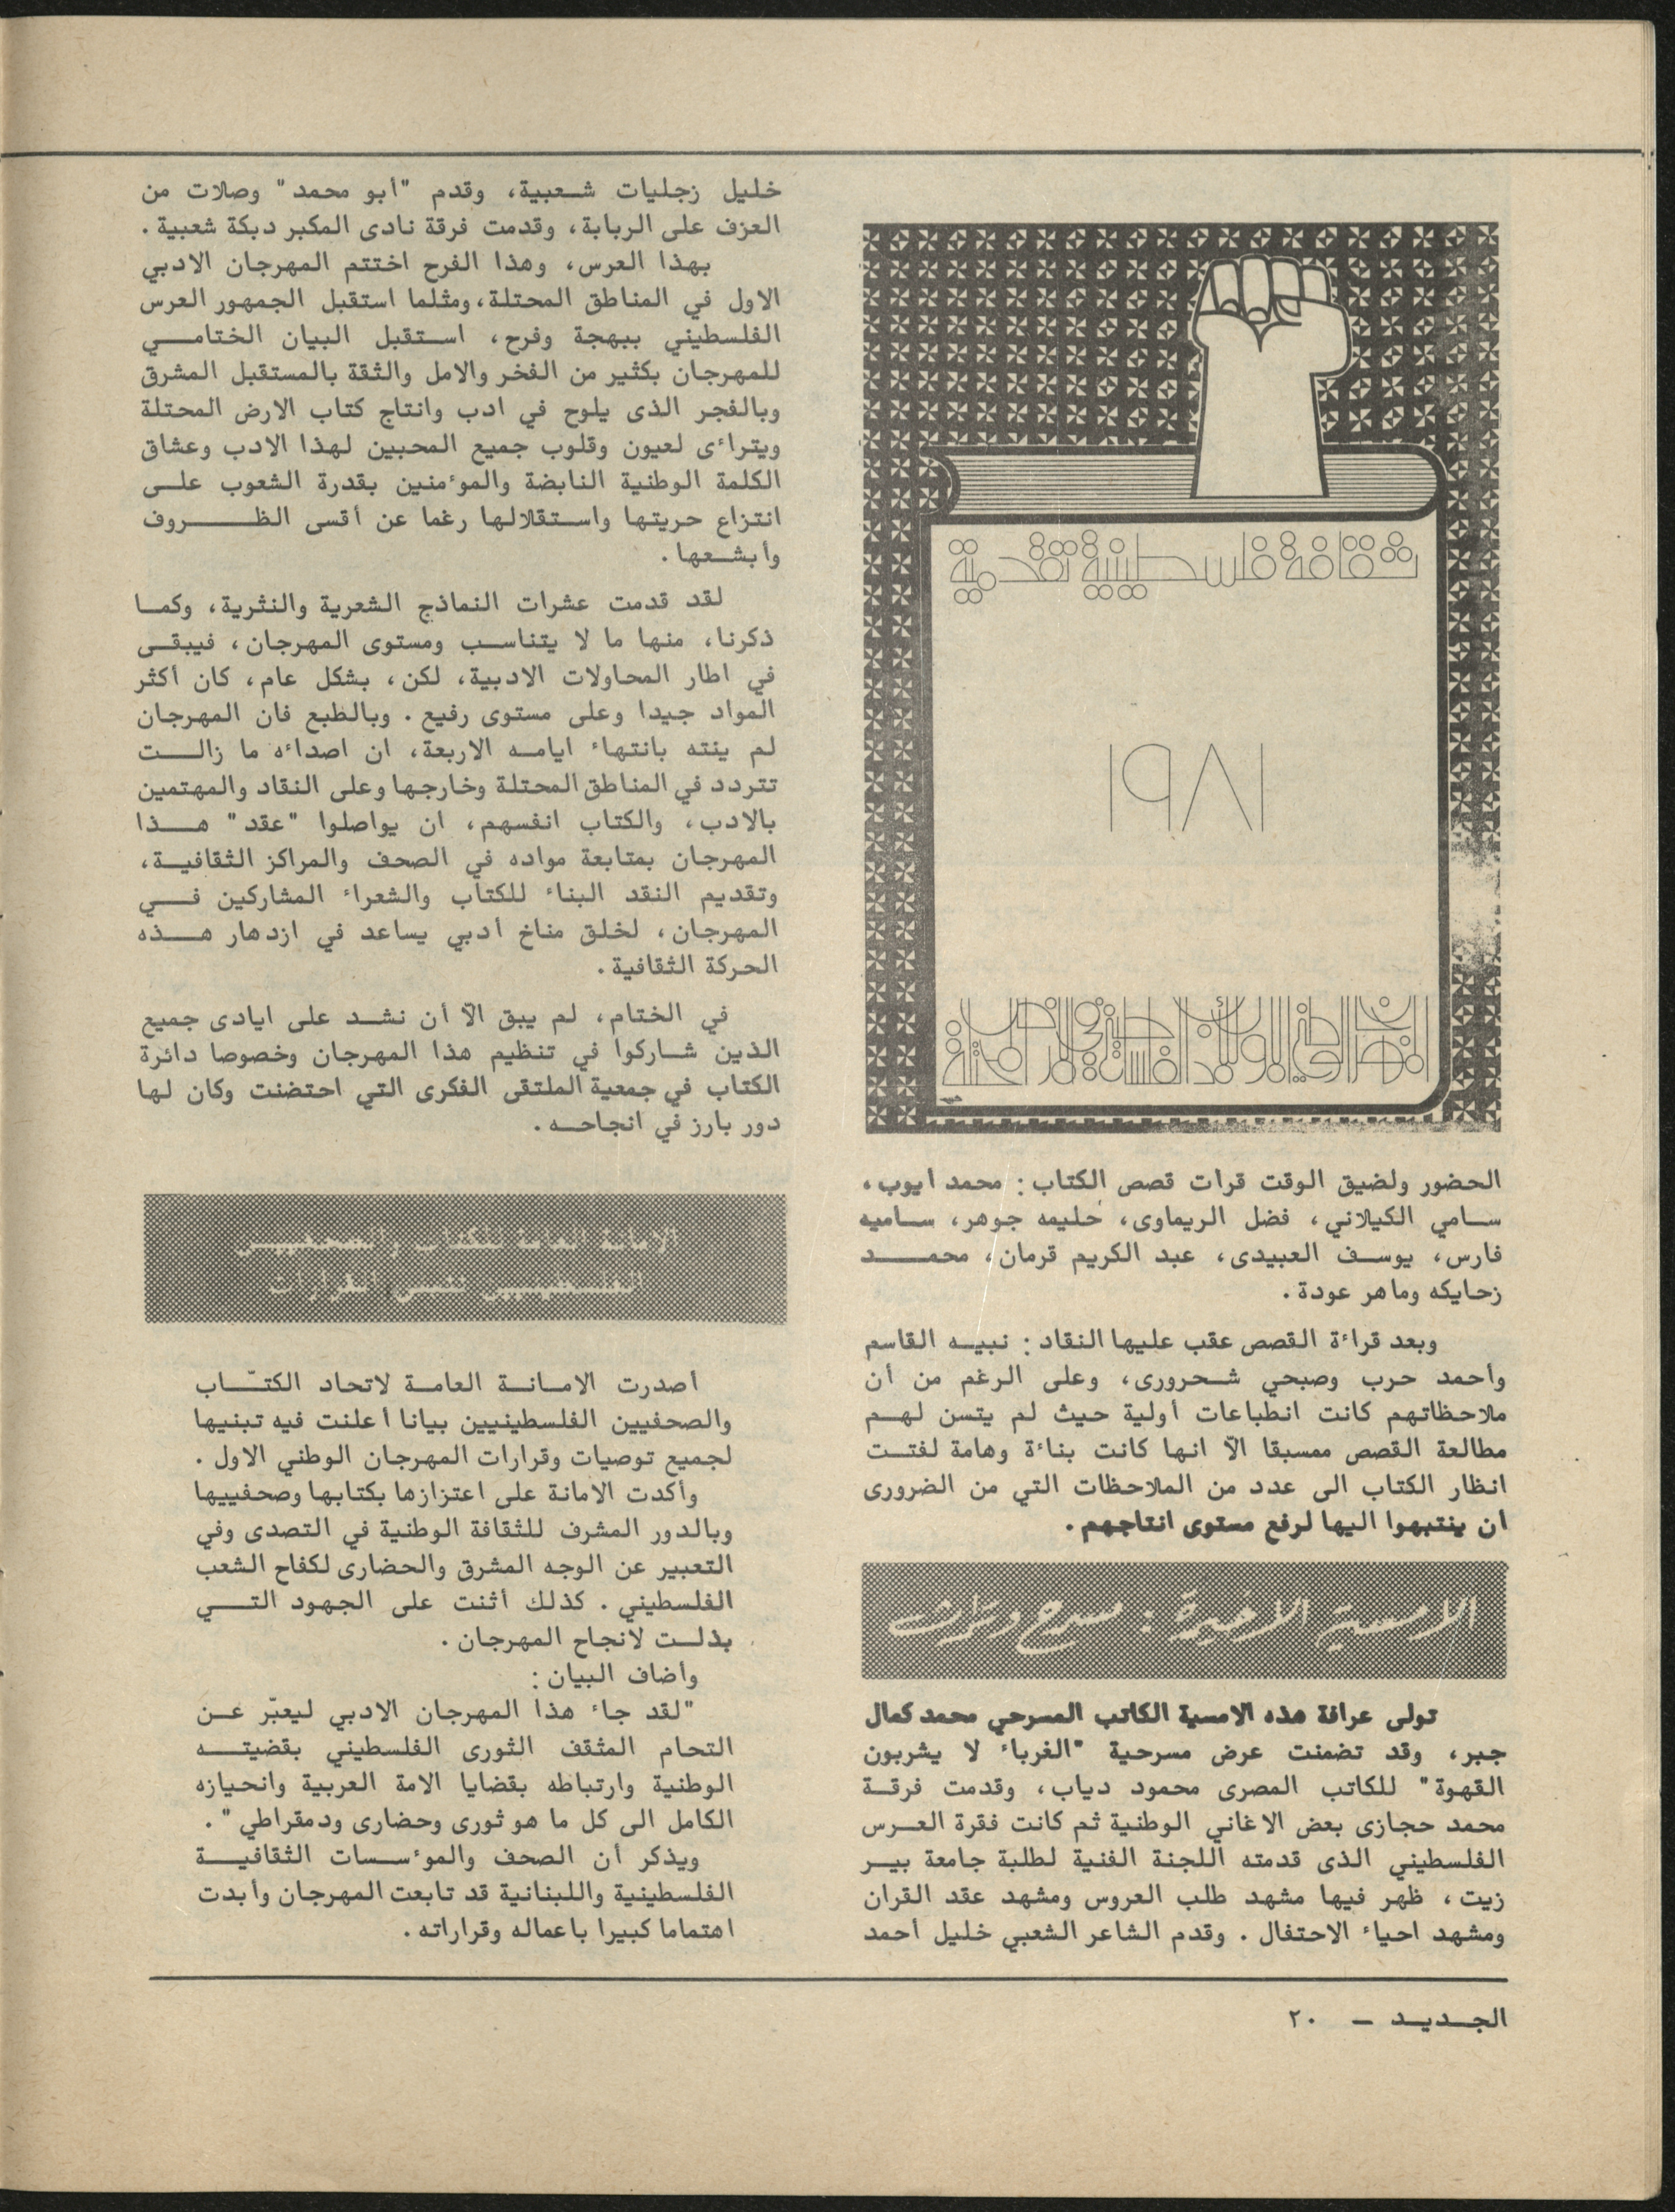 ثقافة فلسطينية تقدمية
١٩٨١
المهرجان الوطني الاول للادب الفلسطيني في الارض المحتلة
الحضور ولضيق الوقت قرات قصص الكتاب : محمد ايوب،
سامي الكيلاني، فضل الريماوى، حليمه جوهر، ساميه
فارس، يوسف العبيدى، عبد الكريم قرمان، محمد
زحايكه وماهر عودة.
وبعد قراءة القصص عقب عليها النقاد : نبيه القاسم
وأحمد حرب وصبحي شحرورى، وعلى الرغم من أن
ملاحظاتهم كانت انطباعات أولية حيث لم يتسن لهم
مطالعة القصص ممسبقا الاّ انها كانت بناءة وهامة لفتت
انظار الكتاب الى عدد من الملاحظات التي من الضرورى
ان ينتبهوا اليها لرفع مستوى انتاجهم.
الامسية الاخيرة : مسرح وعرس
تولى عرافة هذه الامسية الكاتب المسرحي محمد كمال
جبر، وقد تضمنت عرض مسرحية "الغرباء لا يشربون
القهوة" للكاتب المصرى محمود دياب، وقدمت فرقة
محمد حجازى بعض الاغاني الوطنية ثم كانت فقرة العرس
الفلسطيني الذى قدمته اللجنة الفنية لطلبة جامعة بير
زيت، ظهر فيها مشهد طلب العروس ومشهد عقد القران
ومشهد احياء الاحتفال. وقدم الشاعر الشعبي خليل أحمد
خليل زجليات شعبية، وقدم "أبو محمد" وصلات من
العزف على الربابة، وقدمت فرقة نادى المكبر دبكة شعبية.
بهذا العرس، وهذا الفرح اختتم المهرجان الادبي
الاول في المناطق المحتلة، ومثلما استقبل الجمهور العرس
الفلسطيني ببهجة وفرح، استقبل البيان الختامي
للمهرجان بكثير من الفخر والامل والثقة بالمستقبل المشرق
وبالفجر الذى يلوح في ادب وانتاج كتاب الارض المحتلة
ويتراءى لعيون وقلوب جميع المحبين لهذا الادب وعشاق
الكلمة الوطنية النابضة والموءمنين بقدرة الشعوب على
انتزاع حريتها واستقلالها رغما عن أقسى الظروف
وأبشعها.
لقد قدمت عشرات النماذج الشعرية والنثرية، وكما
ذكرنا، منها ما لا يتناسب ومستوى المهرجان، فيبقى
في اطار المحاولات الادبية، لكن، بشكل عام، كان أكثر
المواد جيدا وعلى مستوى رفيع. وبالطبع فان المهرجان
لم ينته بانتهاء ايامه الاربعة، ان اصداءه ما زالت
تتردد في المناطق المحتلة وخارجها وعلى النقاد والمهتمين
بالادب، والكتاب انفسهم، ان يواصلوا "عقد" هذا
المهرجان بمتابعة مواده في الصحف والمراكز الثقافية،
وتقديم النقد البناء للكتاب والشعراء المشاركين في
المهرجان، لخلق مناخ أدبي يساعد في ازدهار هذه
الحركة الثقافية.
في الختام، لم يبق الاّ أن نشد على ايادى جميع
الذين شاركوا في تنظيم هذا المهرجان وخصوصا دائرة
الكتاب في جمعية الملتقى الفكرى التي احتضنت وكان لها
دور بارز في انجاحه.
الامانة العامة للكتاب والصحفيين
الفلسطينيين تتبنى القرارات
أصدرت الامانة العامة لاتحاد الكتّاب
والصحفيين الفلسطينيين بيانا أعلنت فيه تبنيها
لجميع توصيات وقرارات المهرجان الوطني الاول.
وأكدت الامانة على اعتزازها بكتابها وصحفييها
وبالدور المشرف للثقافة الوطنية في التصدى وفي
التعبير عن الوجه المشرق والحضارى لكفاح الشعب
الفلسطيني. كذلك أثنت على الجهود التي
بذلت لانجاح المهرجان.
وأضاف البيان :
"لقد جاء هذا المهرجان الادبي ليعبّر عن
التحام المثقف الثورى الفلسطيني بقضيته
الوطنية وارتباطه بقضايا الامة العربية وانحيازه
الكامل الى كل ما هو ثورى وحضارى ودمقراطي".
ويذكر أن الصحف والموءسسات الثقافية
الفلسطينية واللبنانية قد تابعت المهرجان وأبدت
اهتماما كبيرا باعماله وقراراته.
الجديد – ٢٠